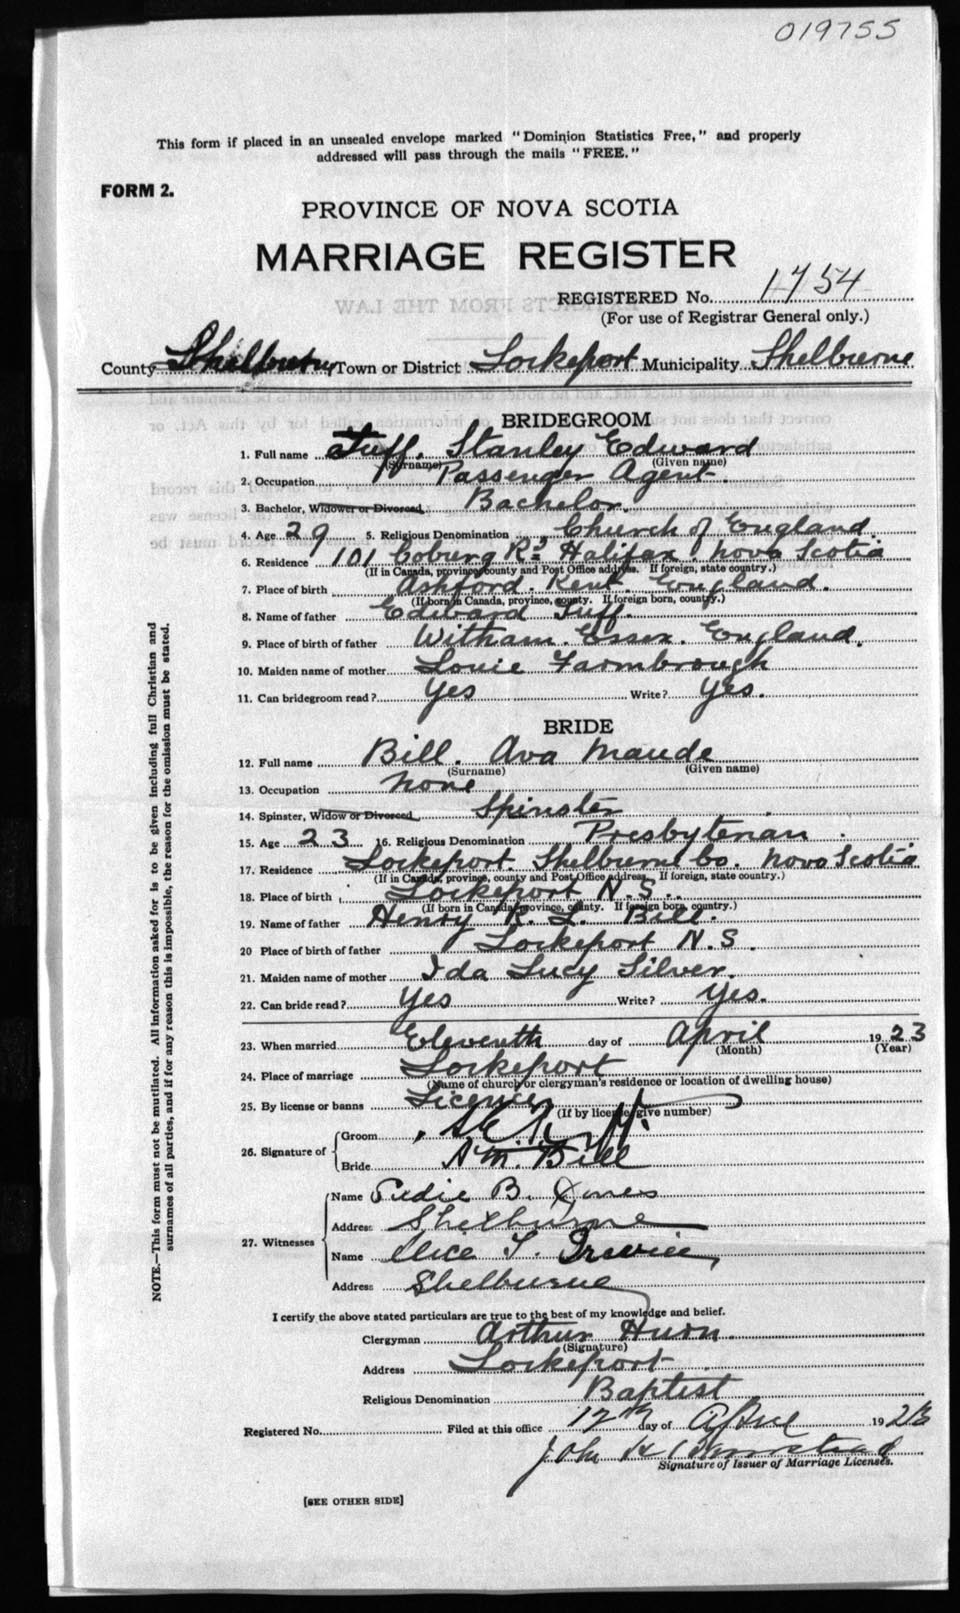 019755
This form if placed in an unsealed envelope marked "Dominion Statistics Free," and properly
addressed will pass through the mails "FREE."
FORM 2.
PROVINCE OF NOVA SCOTIA
MARRIAGE REGISTER
REGISTERED No. 1754
(For use of Registrar General only.)
County Shelburne Town or District Lockeport Municipality Shelburne
BRIDEGROOM
1. Full name Tuff. Stanley Edward
(Surname) (Given name)
2. Occupation Passenger Agent.
3. Bachelor, Widower or Divorced, Bachelor.
4. Age 29 5. Religious Denomination Church of England
6. Residence 101 Coburg Rd Halifax. Nova Scotia
(If in Canada, province, county and Post Office address. If foreign, state country.)
7. Place of birth Ashford. Kent. England.
(If born in Canada, province, county. If foreign born, country.)
8. Name of father Edward Tuff.
9. Place of birth of father Witham. Essex. England.
10. Maiden name of mother Louie Farmbrough
11. Can bridegroom read? Yes Write? Yes.
BRIDE
12. Full name Bill. Ava Maude
(Surname) (Given name)
13. Occupation None
14. Spinster, Widow or Divorced, Spinster
15. Age 23 16. Religious Denomination Presbyterian.
17. Residence Lockeport. Shelburne Co. Nova Scotia
(If in Canada, province, county and Post Office address. If foreign, state country.)
18. Place of birth Lockeport N.S.
(If born in Canada, province, county. If foreign born, country.)
19. Name of father Henry R. L. Bill.
20 Place of birth of father Lockeport N.S.
21. Maiden name of mother Ida Lucy Silver.
22. Can bride read? Yes Write? Yes.
23. When married Eleventh day of April 1923
(Month) (Year)
24. Place of marriage Lockeport
(Name of church or clergyman's residence or location of dwelling house)
25. By license or banns License
(If by license, give number)
26. Signature of
Groom
Bride A.M. Bill
27. Witnesses
Name B. Jones
Address Shelburne
Name Alice T.
Address Shelburne
I certify the above stated particulars are true to the best of my knowledge and belief.
Clergyman Arthur Hurn.
(Signature)
Address Lockeport
Religious Denomination Baptist
Registered No. Filed at this office 12th day of April 1923
John H
Signature of Issuer of Marriage Licenses.
[SEE OTHER SIDE]
NOTE.—This form must not be mutilated. All information asked for is to be given including full Christian and
surnames of all parties, and if for any reason this is impossible, the reason for the omission must be stated.